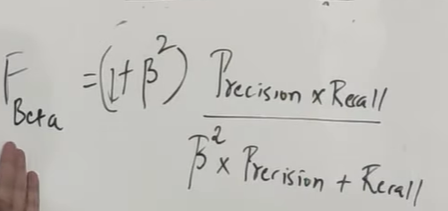 F Beta = (1 + β²) Precision x Recall
β² x Precision + Recall